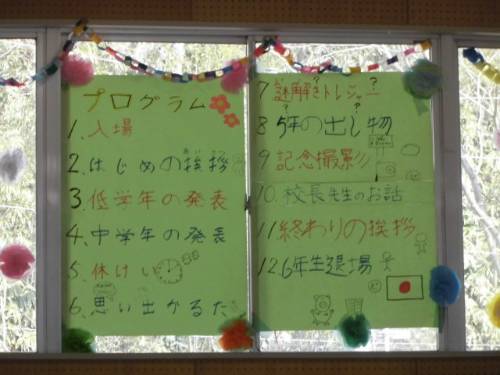 プログラム
1.入場
2.はじめの挨拶
3.低学年の発表
4.中学年の発表
5.休けい
6.思い出かるた
7謎解きトレジャー
8 5年の出し物
9 記念撮影
10.校長先生のお話
11終わりの挨拶
12.6年生退場